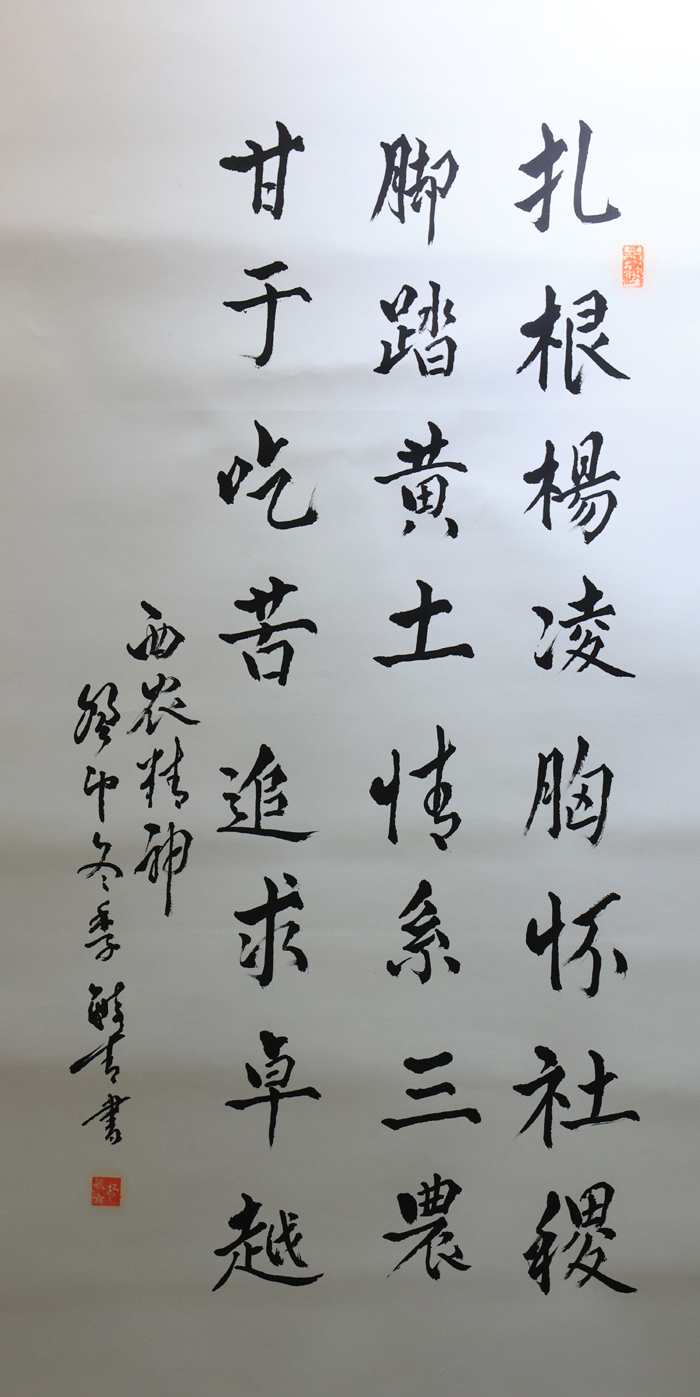 扎根楊凌胸怀社稷
脚踏黄土情系三農
甘于吃苦追求卓越
西农精神
癸卯冬季毓青書